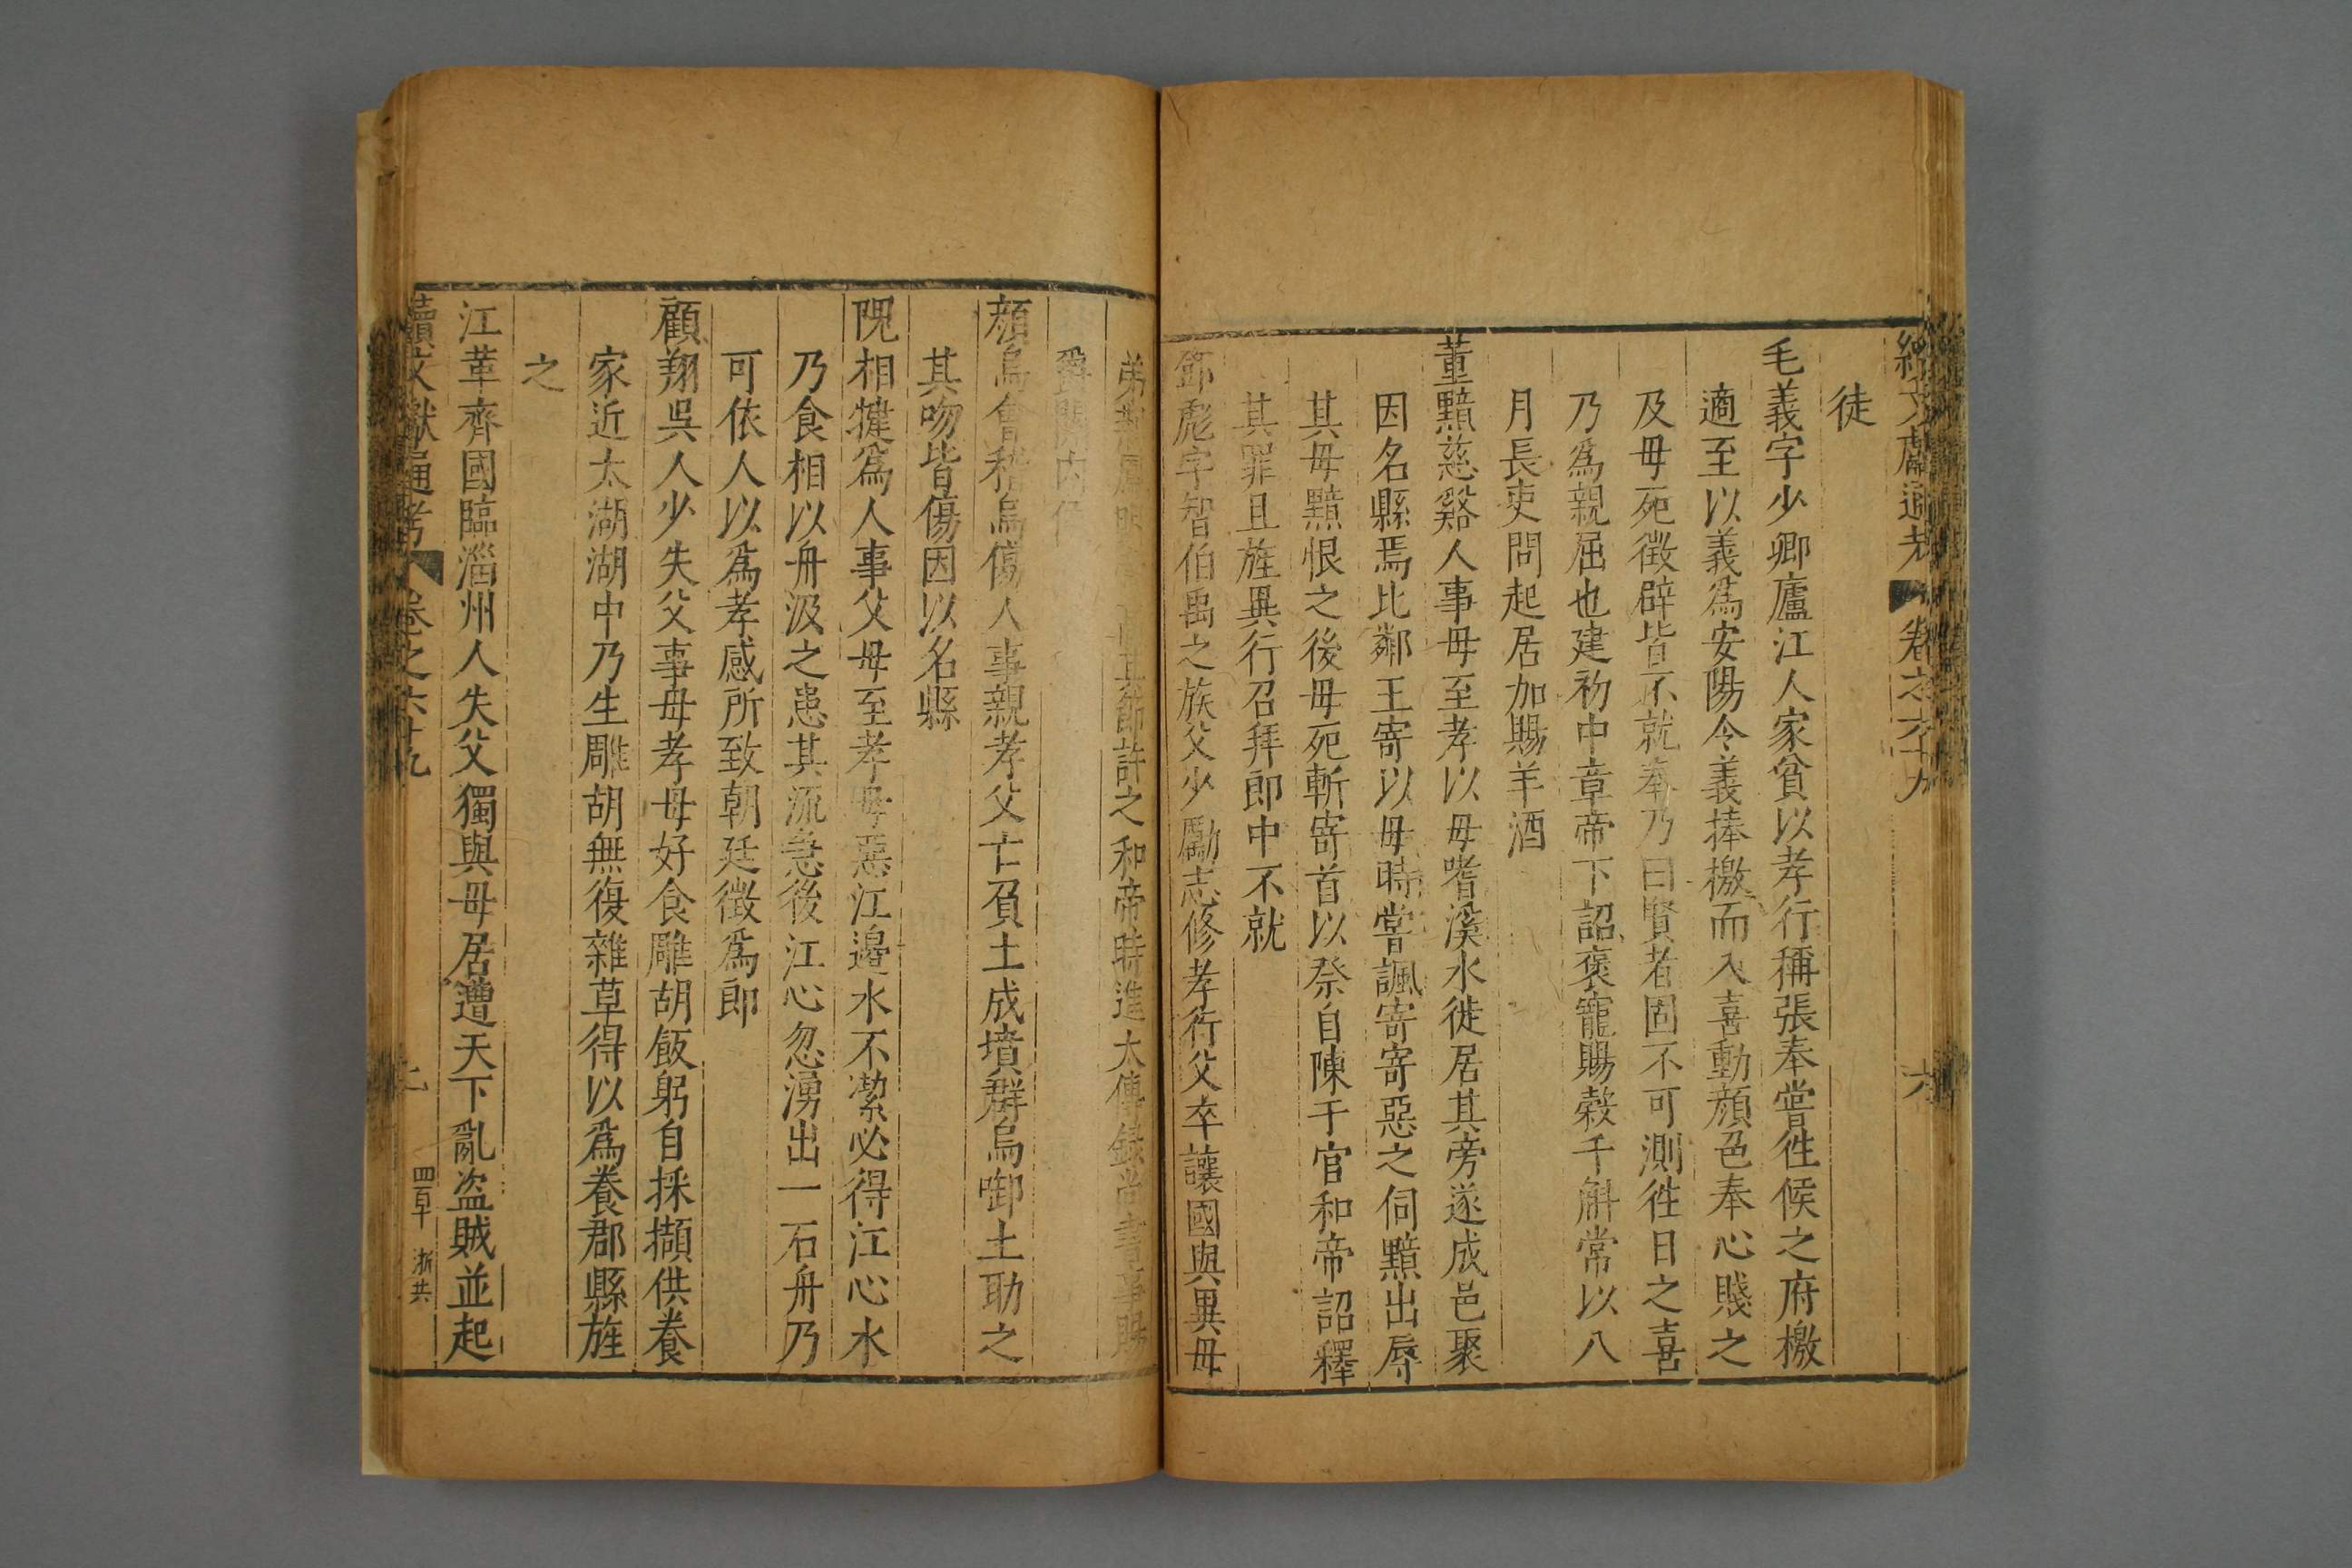 續文獻通考 卷之六十九 六
徒
毛義字少卿廬江人家貧以孝行稱張奉嘗徃候之府檄
適至以義爲安陽令義捧檄而入喜動顔色奉心賤之
及母死徵辟皆不就奉乃曰賢者固不可測徃日之喜
乃爲親屈也建初中章帝下詔褒寵賜榖千斛常以八
月長吏問起居加賜羊酒
董黯慈谿人事母至孝以母嗜溪水徙居其旁遂成邑聚
因名縣焉比鄰王寄以母時嘗諷寄寄惡之伺黯出辱
其母黯恨之後母死斬寄首以祭自陳于官和帝詔釋
其罪且旌異行召拜郎中不就
鄧彪字智伯禹之族父少勵志修孝行父卒讓國與異母
弟荆鳳明 其節許之和帝時進太傅錄尚書事賜
爵關內侯
顔烏會稽烏傷人事親孝父亡負土成墳群烏啣土助之
其吻皆傷因以名縣
隗相犍爲人事父母至孝母惡江邊水不潔必得江心水
乃食相以舟汲之患其流急後江心忽湧出一石舟乃
可依人以爲孝感所致朝廷徵爲郎
顧翔吳人少失父事母孝母好食雕胡飯躬自採擷供養
家近太湖湖中乃生雕胡無復雜草得以爲養郡縣旌
之
江革齊國臨淄州人失父獨與母居遭天下亂盗賊並起
續文獻通考 卷之六十九 七 四百 浙共